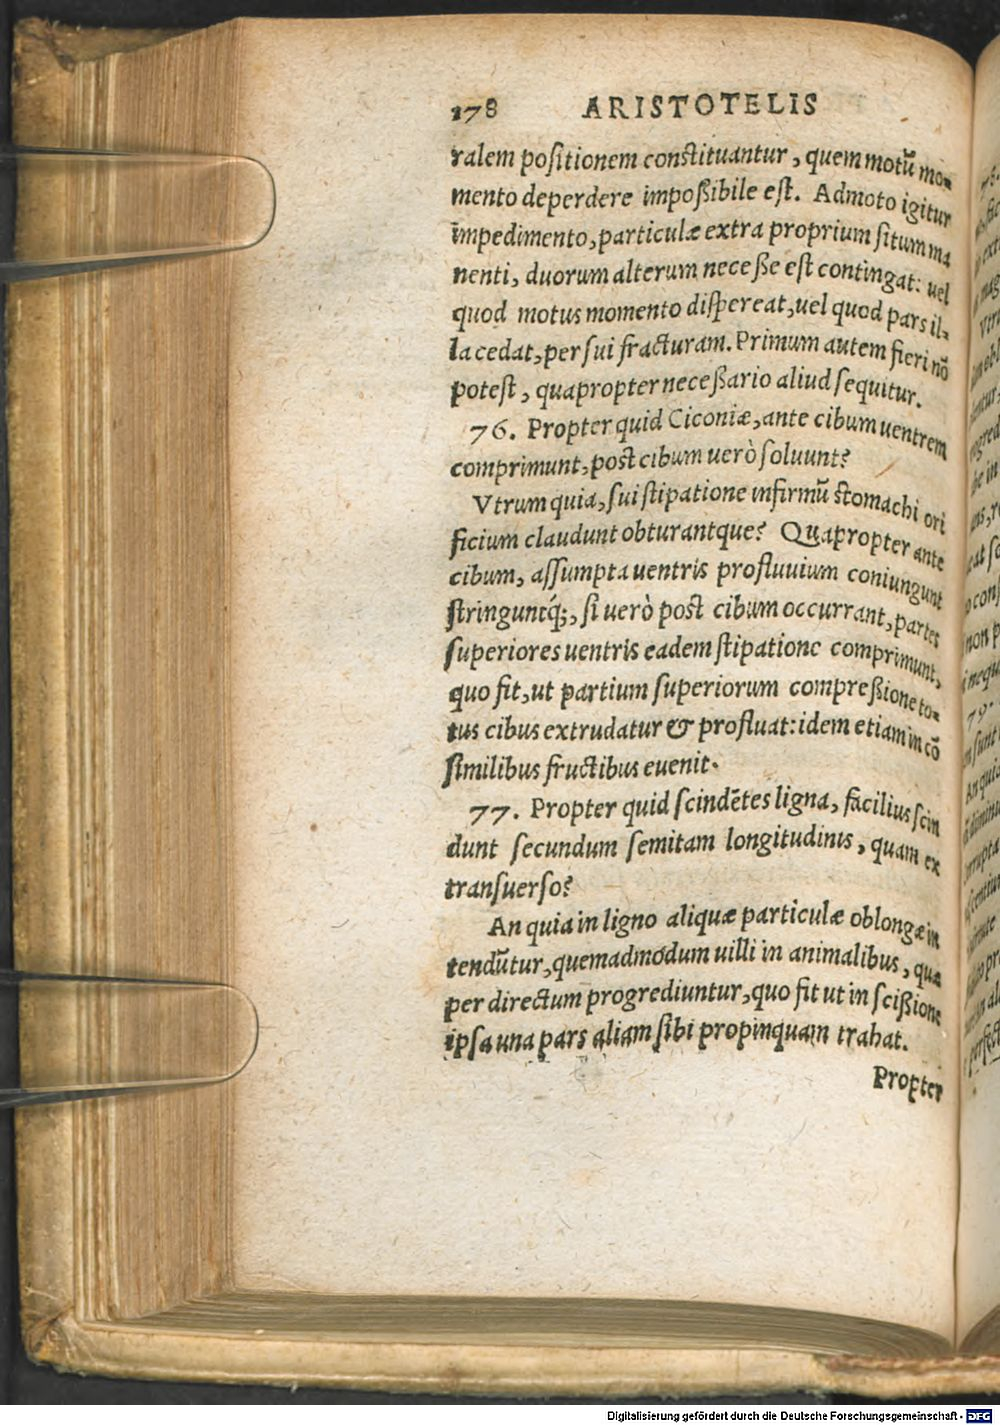 178 ARISTOTELIS
ralem poſitionem conſtituantur, quem motũ mo-
mento deperdere impoßibile eſt. Admoto igitur
impedimento, particulæ extra proprium ſitum ma
nenti, duorum alterum neceſſe eſt contingat: uel
quod motus momento diſpereat, uel quod pars il-
la cedat, per ſui fracturam. Primum autem fieri nõ
poteſt, quapropter neceßario aliud ſequitur.
76. Propter quid Ciconiæ, ante cibum uentrem
comprimunt, poſt cibum uerò ſoluunt?
Vtrum quia, ſui ſtipatione infirmũ ſtomachi ori
ficium claudunt obturantque? Quapropter ante
cibum, aſſumpta uentris profluuium coniungunt
ſtringuntq́;, ſi uerò poſt cibum occurrant, partes
ſuperiores uentris eadem ſtipatione comprimunt,
quo fit, ut partium ſuperiorum compreßione to-
tus cibus extrudatur & profluat: idem etiam in cõ
ſimilibus fructibus euenit.
77. Propter quid ſcindẽtes ligna, facilius ſcin
dunt ſecundum ſemitam longitudinis, quam ex
tranſuerſo?
An quia in ligno aliquæ particulæ oblongæ in
tendũtur, quemadmodum uilli in animalibus, quæ
per directum progrediuntur, quo fit ut in ſcißione
ipſa una pars aliam ſibi propinquam trahat.
Propter
Digitalisierung gefördert durch die Deutsche Forschungsgemeinschaft - DFG